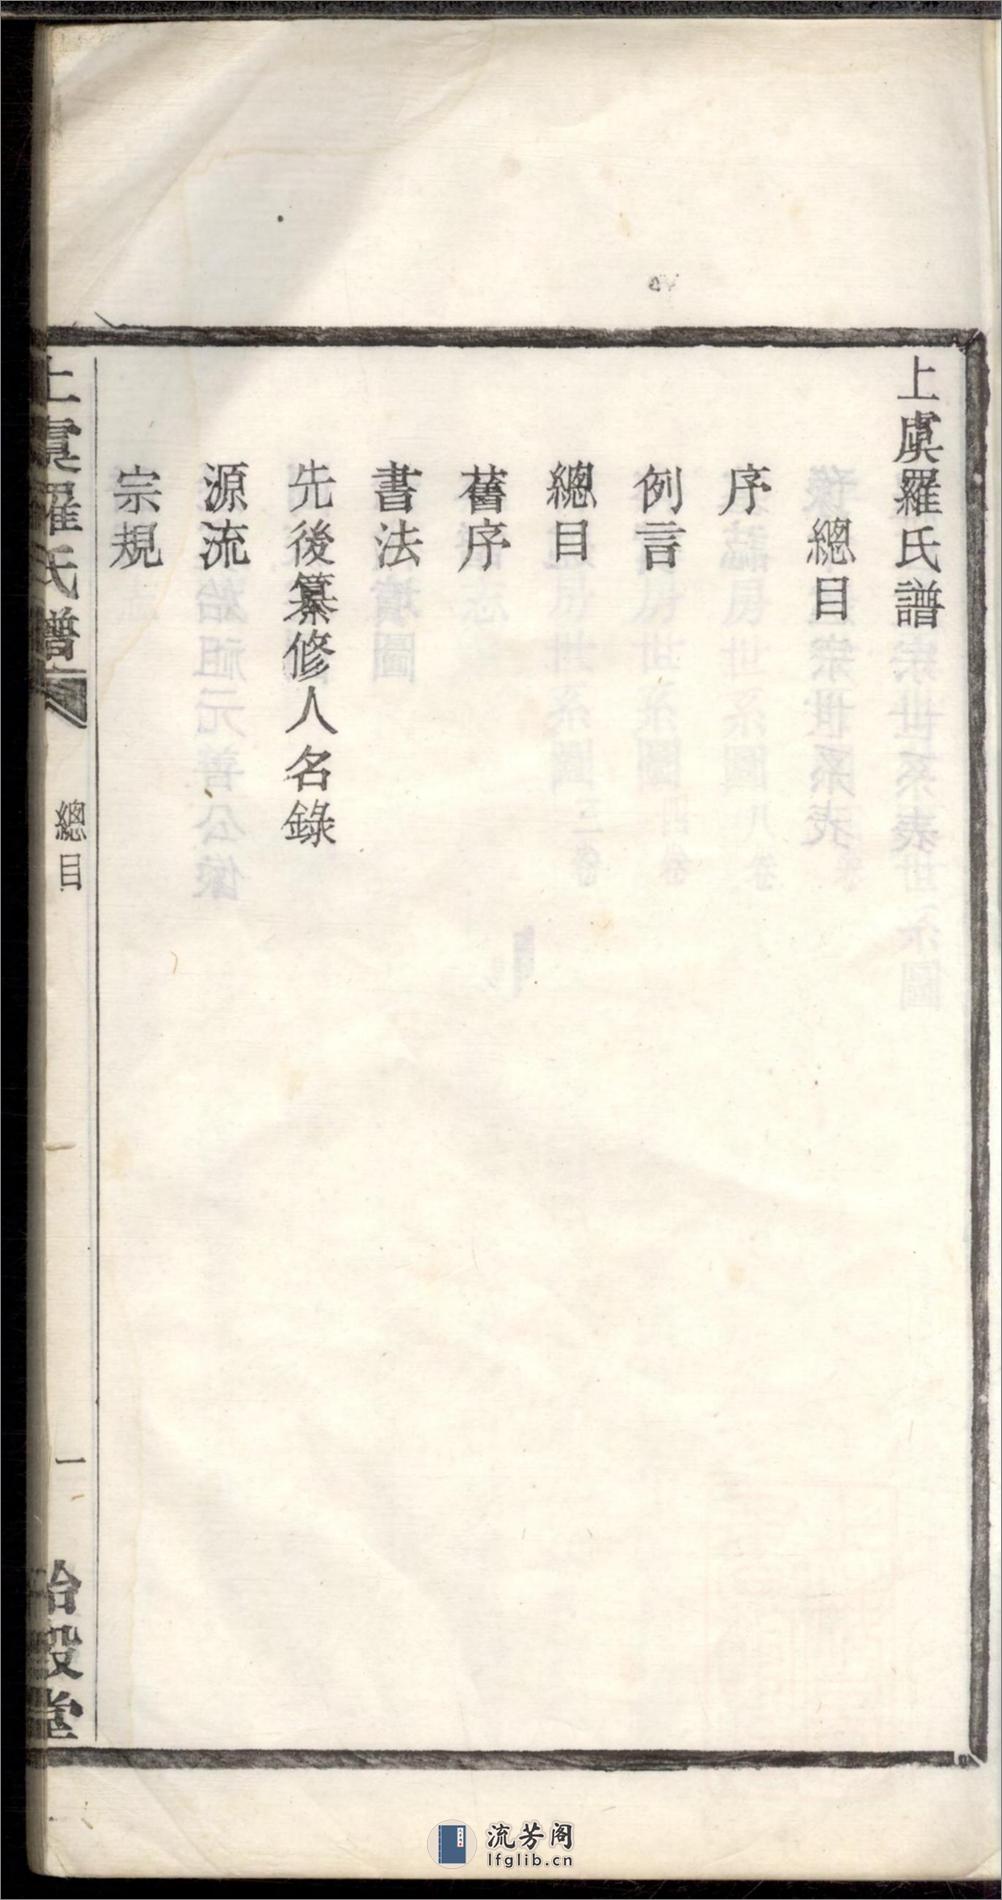 上虞羅氏譜
總目
序
例言
總目
舊序
書法
先後纂修人名錄
源流
宗規
上虞羅氏譜
總目
一
治穀堂
流芳阁
lfglib.cn